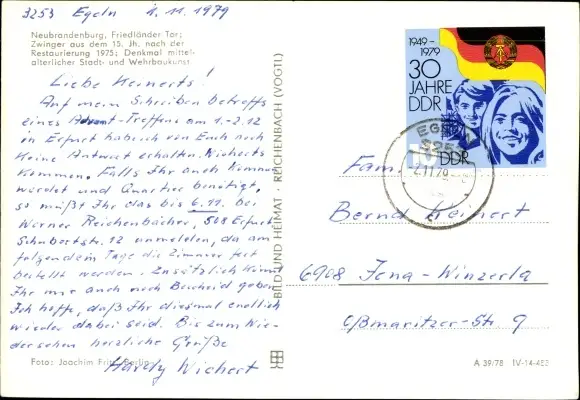 3253 Egeln 1.11.1979
Neubrandenburg, Friedländer Tor;
Zwinger aus dem 15. Jh. nach der
Restaurierung 1975; Denkmal mittel-
alterlicher Stadt- und Wehrbaukunst
Liebe Heinerts!
Auf mein Schreiben betreffs
eines Advent-Treffens am 1.-2.12
in Erfurt habe ich von Euch noch
keine Antwort erhalten. Wicherts
kommen. Falls Ihr auch kommen
würdet und Quartier benötigt,
so müßt Ihr das bis 6.11. bei
Werner Reichenbächer, 508 Erfurt
Schubertstr. 12 anmelden, da am
folgendem Tage die Zimmer fest
bestellt werden. Zusätzlich könnt
Ihr mir auch noch Bescheid geben.
Ich hoffe, daß Ihr diesmal endlich
wieder dabei seid. Bis zum Wie-
dersehen herzliche Grüße
Hardy Wichert
Foto: Joachim Fritz, Berlin
BILD UND HEIMAT · REICHENBACH (VOGTL)
1949-
1979
30
JAHRE
DDR
10
DDR
EGELN
3253
-2.11.79
Fam.
Bernd Heinert
6908 Jena-Winzerla
Oßmaritzer-Str. 9
A 39/78 IV-14-483